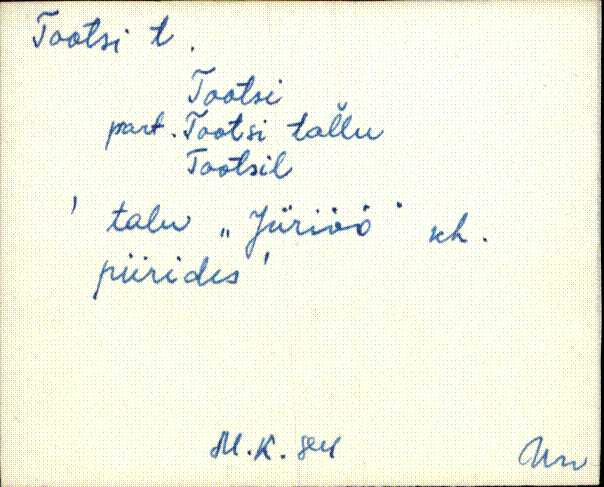 Tootsi t.
Tootsi
part. Tootsi tal̆lu
Tootsil
' talu „Jüriöö" kh.
piirides'
M.K. 84